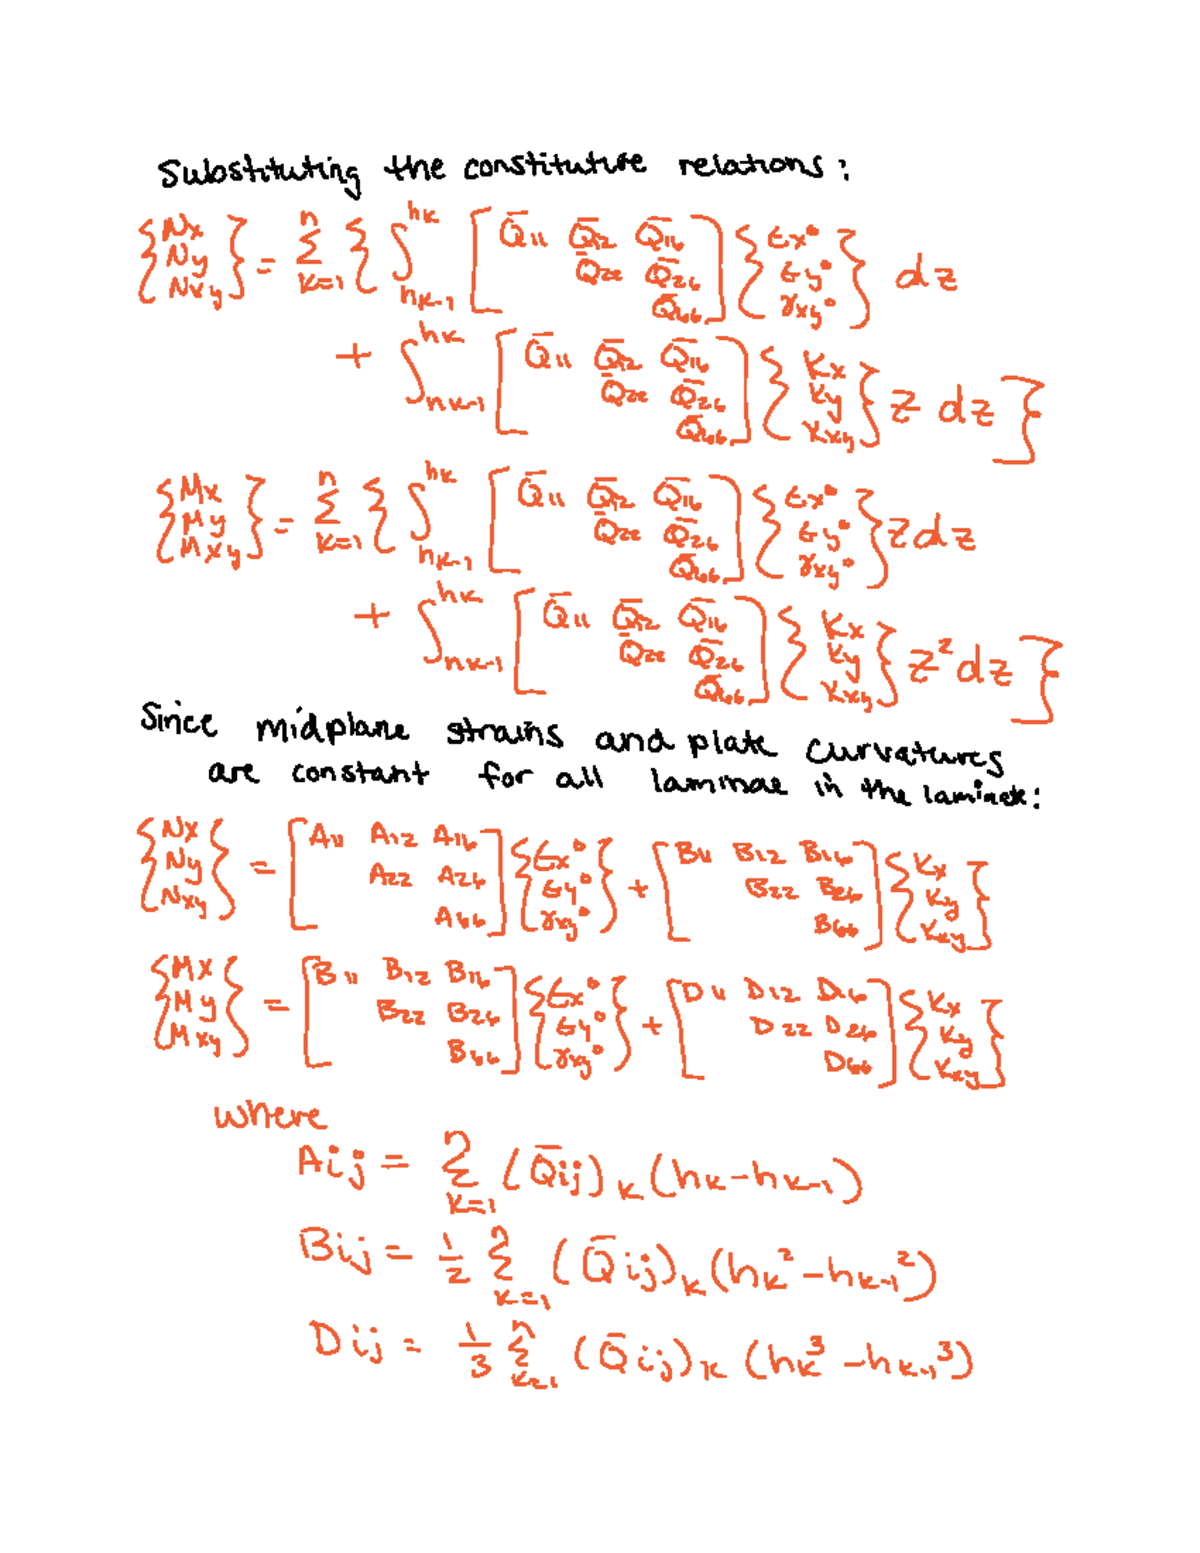 Substituting the constitutive relations:
{Nx Ny Nxy} = Σ_{k=1}^{n} { ∫_{hk-1}^{hk} [Q̄11 Q̄12 Q̄16
Q̄22 Q̄26
Q̄66] {εx° εy° γxy°} dz
+ ∫_{hk-1}^{hk} [Q̄11 Q̄12 Q̄16
Q̄22 Q̄26
Q̄66] {Kx Ky Kxy} z dz }
{Mx My Mxy} = Σ_{k=1}^{n} { ∫_{hk-1}^{hk} [Q̄11 Q̄12 Q̄16
Q̄22 Q̄26
Q̄66] {εx° εy° γxy°} z dz
+ ∫_{hk-1}^{hk} [Q̄11 Q̄12 Q̄16
Q̄22 Q̄26
Q̄66] {Kx Ky Kxy} z² dz }
Since midplane strains and plate curvatures
are constant for all laminae in the laminate:
{Nx Ny Nxy} = [A11 A12 A16
A22 A26
A66] {εx° εy° γxy°} + [B11 B12 B16
B22 B26
B66] {Kx Ky Kxy}
{Mx My Mxy} = [B11 B12 B16
B22 B26
B66] {εx° εy° γxy°} + [D11 D12 D16
D22 D26
D66] {Kx Ky Kxy}
where
Aij = Σ_{k=1}^{n} (Q̄ij)k (hk - hk-1)
Bij = 1/2 Σ_{k=1}^{n} (Q̄ij)k (hk² - hk-1²)
Dij = 1/3 Σ_{k=1}^{n} (Q̄ij)k (hk³ - hk-1³)